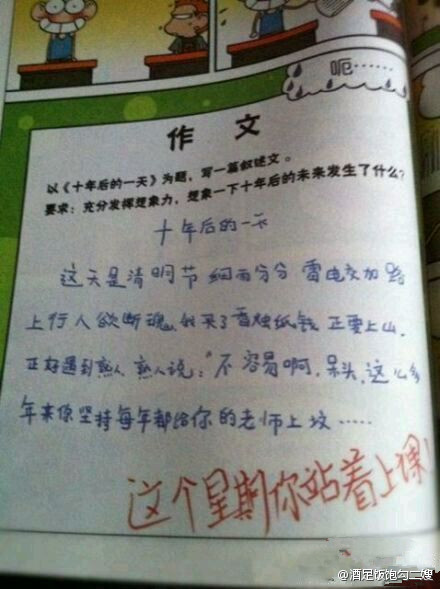 呃……
作文
以《十年后的一天》为题，写一篇叙述文。
要求：充分发挥想象力，想象一下十年后的未来发生了什么？
十年后的一天
这天是清明节 细雨分分 雷电交加 路
上行人欲断魂、我买了香烛纸钱 正要上山.
正好遇到熟人 熟人说："不容易啊，呆头，这么多
年来你坚持每年都给你的老师上坟……
这个星期你站着上课！
@酒足饭饱勾二嫂